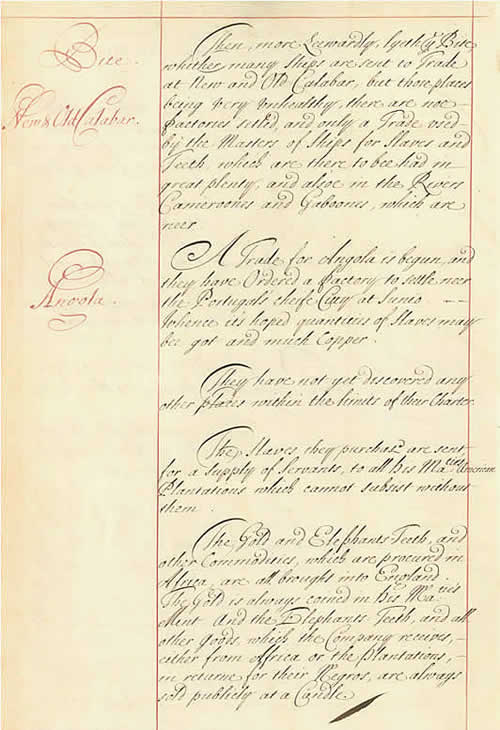 Bite.
Then, more Leewardly, lyeth ye Bite
whither many Ships are sent to Trade
at New and Old Calabar, but those places
being very unhealthy, there are noe
New & Old Calabar.
Factories setled, and only a Trade used
by the Masters of Ships for Slaves and
Teeth, which are there to bee had in
great plenty, and alsoe in the Rivers
Cameroones and Gaboones, which are
neer.
Angola.
A Trade for Angola is begun, and
they have Ordered a Factory to settle neer
the Portugals cheife Citty at Sunio --
Whence its hoped quantities of Slaves may
bee got and much Copper.
They have not yet discovered any
other places within the limits of their Charter.
The Slaves they purchase are sent,
for a Supply of Servants, to all his Maties American
Plantations which cannot subsist without
them.
The Gold and Elephants Teeth, and
other Commodities, which are procured in
Africa, are all brought into England.
The Gold is always coined in his Maties
Mint And the Elephants Teeth, and all
other goods, which the Company receives,
either from Africa or the Plantations,
in returne for their Negros, are always
sold publicly at a Candle